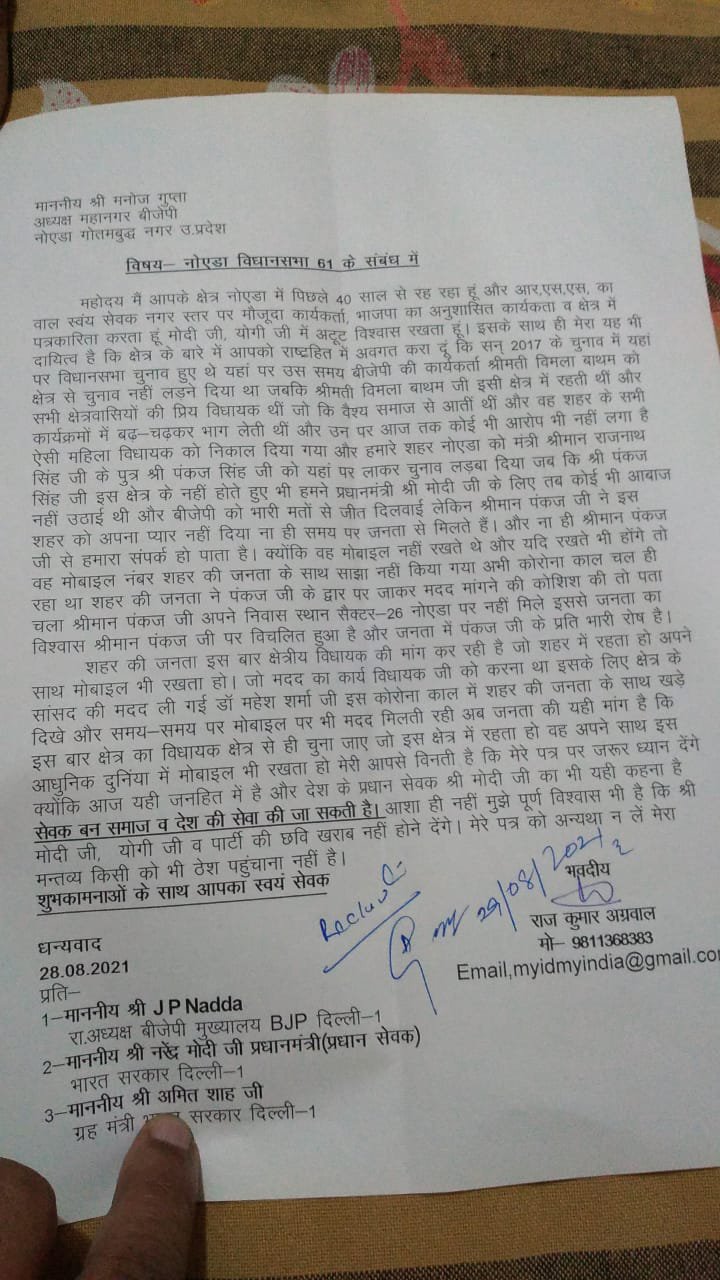 माननीय श्री मनोज गुप्ता
अध्यक्ष महानगर बीजेपी
नोएडा गोतमबुद्ध नगर उ.प्रदेश
विषय– नोएडा विधानसभा 61 के संबंध में
महोदय मैं आपके क्षेत्र नोएडा में पिछले 40 साल से रह रहा हूं और आर,एस,एस, का
वाल स्वंय सेवक नगर स्तर पर मौजूदा कार्यकर्ता, भाजपा का अनुशासित कार्यकता व क्षेत्र में
पत्रकारिता करता हूं मोदी जी, योगी जी में अटूट विश्वास रखता हूं। इसके साथ ही मेरा यह भी
दायित्व है कि क्षेत्र के बारे में आपको राष्टहित में अवगत करा दूं कि सन् 2017 के चुनाव में यहां
पर विधानसभा चुनाव हुए थे यहां पर उस समय बीजेपी की कार्यकर्ता श्रीमती विमला बाथम को
क्षेत्र से चुनाव नहीं लड़ने दिया था जबकि श्रीमती विमला बाथम जी इसी क्षेत्र में रहती थीं और
सभी क्षेत्रवासियों की प्रिय विधायक थीं जो कि वैश्य समाज से आतीं थीं और वह शहर के सभी
कार्यक्रमों में बढ़–चढ़कर भाग लेती थीं और उन पर आज तक कोई भी आरोप भी नहीं लगा है
ऐसी महिला विधायक को निकाल दिया गया और हमारे शहर नोएडा को मंत्री श्रीमान राजनाथ
सिंह जी के पुत्र श्री पंकज सिंह जी को यहां पर लाकर चुनाव लड़बा दिया जब कि श्री पंकज
सिंह जी इस क्षेत्र के नहीं होते हुए भी हमने प्रधानमंत्री श्री मोदी जी के लिए तब कोई भी आबाज
नहीं उठाई थी और बीजेपी को भारी मतों से जीत दिलवाई लेकिन श्रीमान पंकज जी ने इस
शहर को अपना प्यार नहीं दिया ना ही समय पर जनता से मिलते हैं। और ना ही श्रीमान पंकज
जी से हमारा संपर्क हो पाता है। क्योंकि वह मोबाइल नहीं रखते थे और यदि रखते भी होंगे तो
वह मोबाइल नंबर शहर की जनता के साथ साझा नहीं किया गया अभी कोरोना काल चल ही
रहा था शहर की जनता ने पंकज जी के द्वार पर जाकर मदद मांगने की कोशिश की तो पता
चला श्रीमान पंकज जी अपने निवास स्थान सैक्टर–26 नोएडा पर नहीं मिले इससे जनता का
विश्वास श्रीमान पंकज जी पर विचलित हुआ है और जनता में पंकज जी के प्रति भारी रोष है।
शहर की जनता इस बार क्षेत्रीय विधायक की मांग कर रही है जो शहर में रहता हो अपने
साथ मोबाइल भी रखता हो। जो मदद का कार्य विधायक जी को करना था इसके लिए क्षेत्र के
सांसद की मदद ली गई डॉ महेश शर्मा जी इस कोरोना काल में शहर की जनता के साथ खड़े
दिखे और समय–समय पर मोबाइल पर भी मदद मिलती रही अब जनता की यही मांग है कि
इस बार क्षेत्र का विधायक क्षेत्र से ही चुना जाए जो इस क्षेत्र में रहता हो वह अपने साथ इस
आधुनिक दुर्निया में मोबाइल भी रखता हो मेरी आपसे विनती है कि मेरे पत्र पर जरूर ध्यान देंगे
क्योंकि आज यही जनहित में है और देश के प्रधान सेवक श्री मोदी जी का भी यही कहना है
सेवक बन समाज व देश की सेवा की जा सकती है। आशा ही नहीं मुझे पूर्ण विश्वास भी है कि श्री
मोदी जी, योगी जी व पार्टी की छवि खराब नहीं होने देंगे। मेरे पत्र को अन्यथा न लें मेरा
मन्तव्य किसी को भी ठेश पहुंचाना नहीं है।
शुभकामनाओं के साथ आपका स्वयं सेवक
29/08/2021
भवदीय
राज कुमार अग्रवाल
मो– 9811368383
Email,myidmyindia@gmail.com
धन्यवाद
28.08.2021
प्रति–
1–माननीय श्री J P Nadda
रा.अध्यक्ष बीजेपी मुख्यालय BJP दिल्ली–1
2–माननीय श्री नरेंद्र मोदी जी प्रधानमंत्री(प्रधान सेवक)
भारत सरकार दिल्ली–1
3–माननीय श्री अमित शाह जी
ग्रह मंत्री भारत सरकार दिल्ली–1